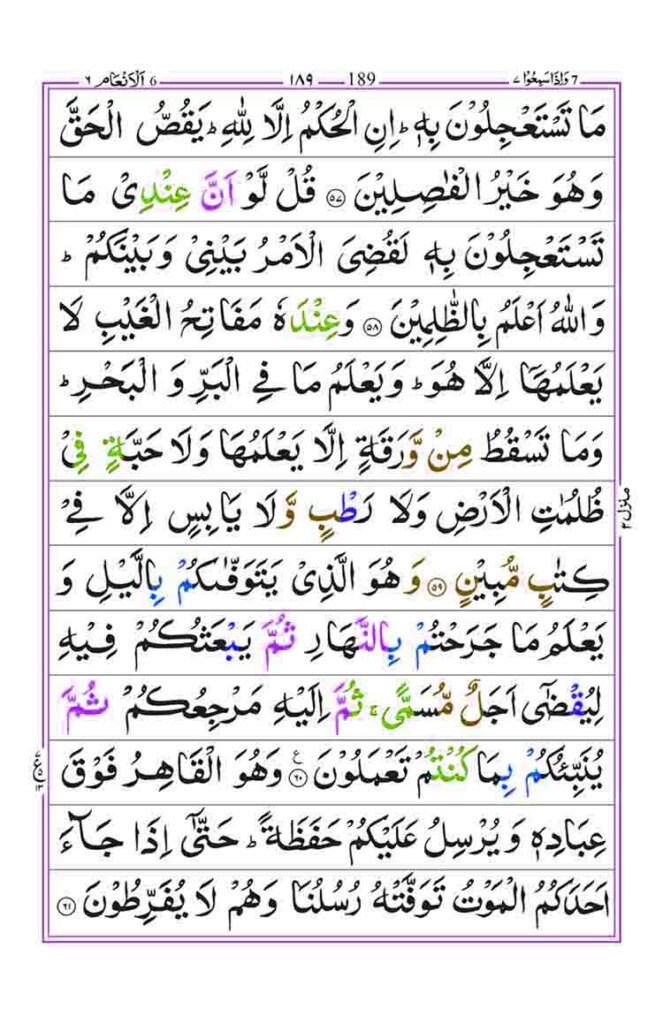 7 وَاِذَا سَمِعُوْا ٧ 189 ١٨٩ 6 اَلْاَنْعَام ٦
مَا تَسْتَعْجِلُوْنَ بِهٖ ؕ اِنِ الْحُكْمُ اِلَّا لِلّٰهِ ؕ يَقُصُّ الْحَقَّ
وَهُوَ خَيْرُ الْفٰصِلِيْنَ ۝٥٧ قُلْ لَّوْ اَنَّ عِنْدِىْ مَا
تَسْتَعْجِلُوْنَ بِهٖ لَقُضِىَ الْاَمْرُ بَيْنِىْ وَبَيْنَكُمْ ؕ
وَاللّٰهُ اَعْلَمُ بِالظّٰلِمِيْنَ ۝٥٨ وَعِنْدَهٗ مَفَاتِحُ الْغَيْبِ لَا
يَعْلَمُهَاۤ اِلَّا هُوَ ؕ وَيَعْلَمُ مَا فِى الْبَرِّ وَ الْبَحْرِ ؕ
وَمَا تَسْقُطُ مِنْ وَّرَقَةٍ اِلَّا يَعْلَمُهَا وَلَا حَبَّةٍ فِىْ
ظُلُمٰتِ الْاَرْضِ وَلَا رَطْبٍ وَّلَا يَابِسٍ اِلَّا فِىْ
كِتٰبٍ مُّبِيْنٍ ۝٥٩ وَهُوَ الَّذِىْ يَتَوَفّٰٮكُمْ بِالَّيْلِ وَ
يَعْلَمُ مَا جَرَحْتُمْ بِالنَّهَارِ ثُمَّ يَبْعَثُكُمْ فِيْهِ
لِيُقْضٰٓى اَجَلٌ مُّسَمًّى ۚ ثُمَّ اِلَيْهِ مَرْجِعُكُمْ ثُمَّ
يُنَبِّئُكُمْ بِمَا كُنْتُمْ تَعْمَلُوْنَ ۝٦٠ ع وَهُوَ الْقَاهِرُ فَوْقَ
عِبَادِهٖ وَيُرْسِلُ عَلَيْكُمْ حَفَظَةً ؕ حَتّٰٓى اِذَا جَآءَ
اَحَدَكُمُ الْمَوْتُ تَوَفَّتْهُ رُسُلُنَا وَهُمْ لَا يُفَرِّطُوْنَ ۝٦١
منزل ٢